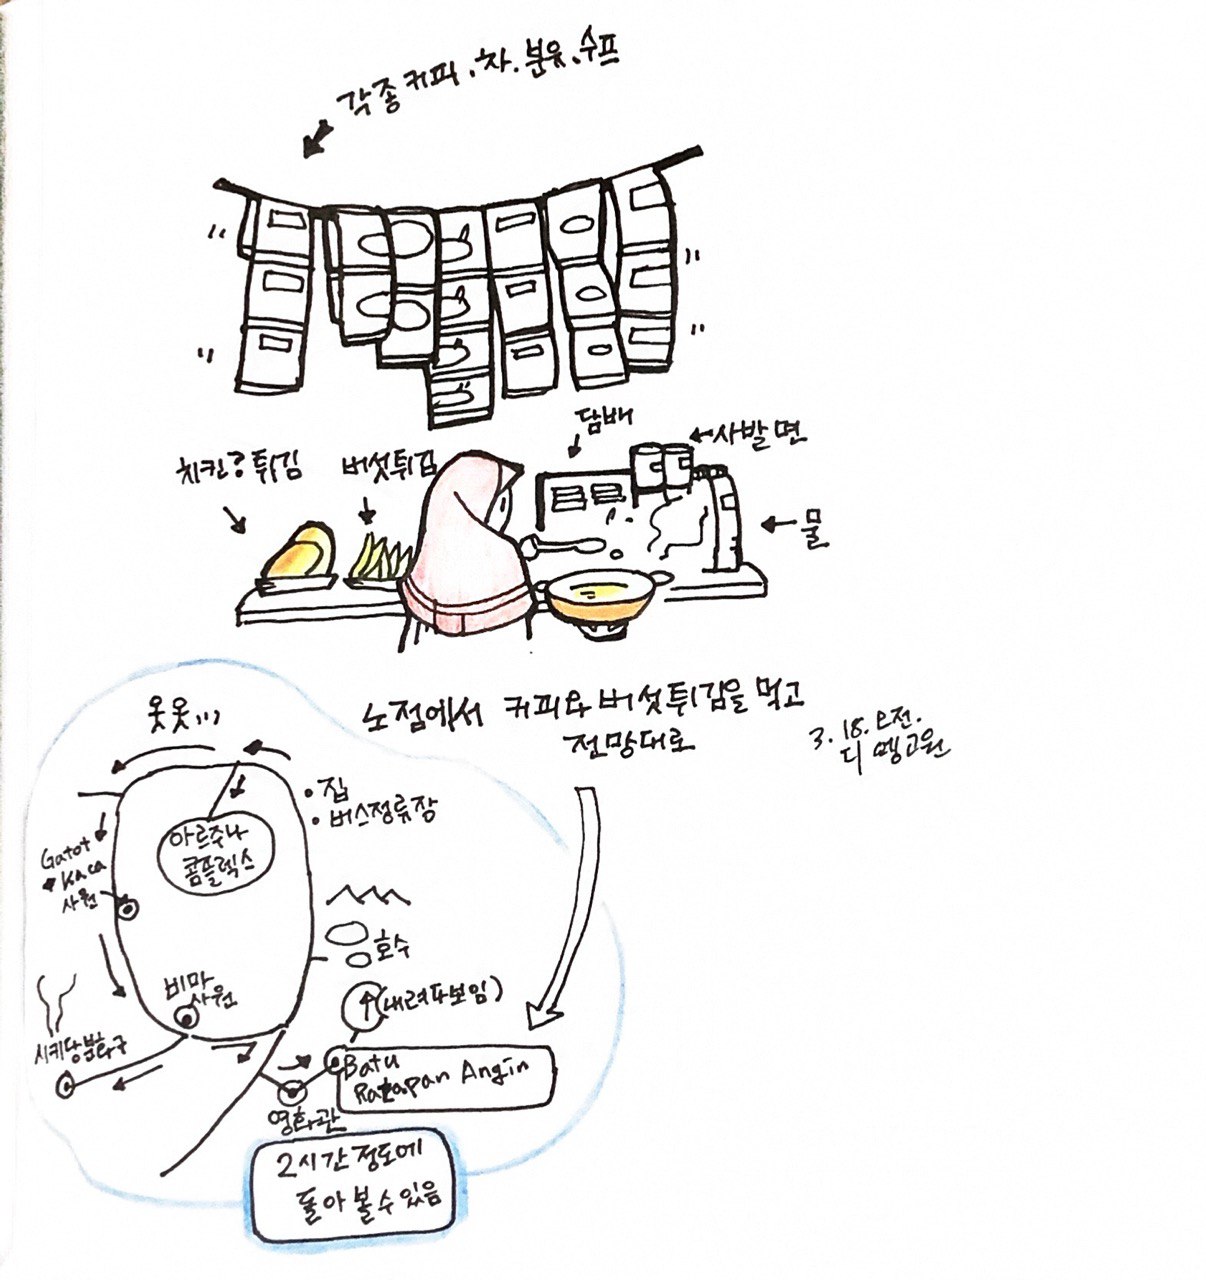 각종 커피.차.분유.수프
담배
사발면
치킨공튀김
버섯튀김
물
노점에서 커피와 버섯튀김을 먹고
전망대로
3. 18. 오전.
디엥고원
옷옷)))
• 집
• 버스정류장
아르주나
콤플렉스
Gatot
Kaca
사원
호수
비마
사원
(내려다보임)
시키당분화구
Batu
Ratapan Angin
영화관
2시간 정도에
돌아 볼 수 있음